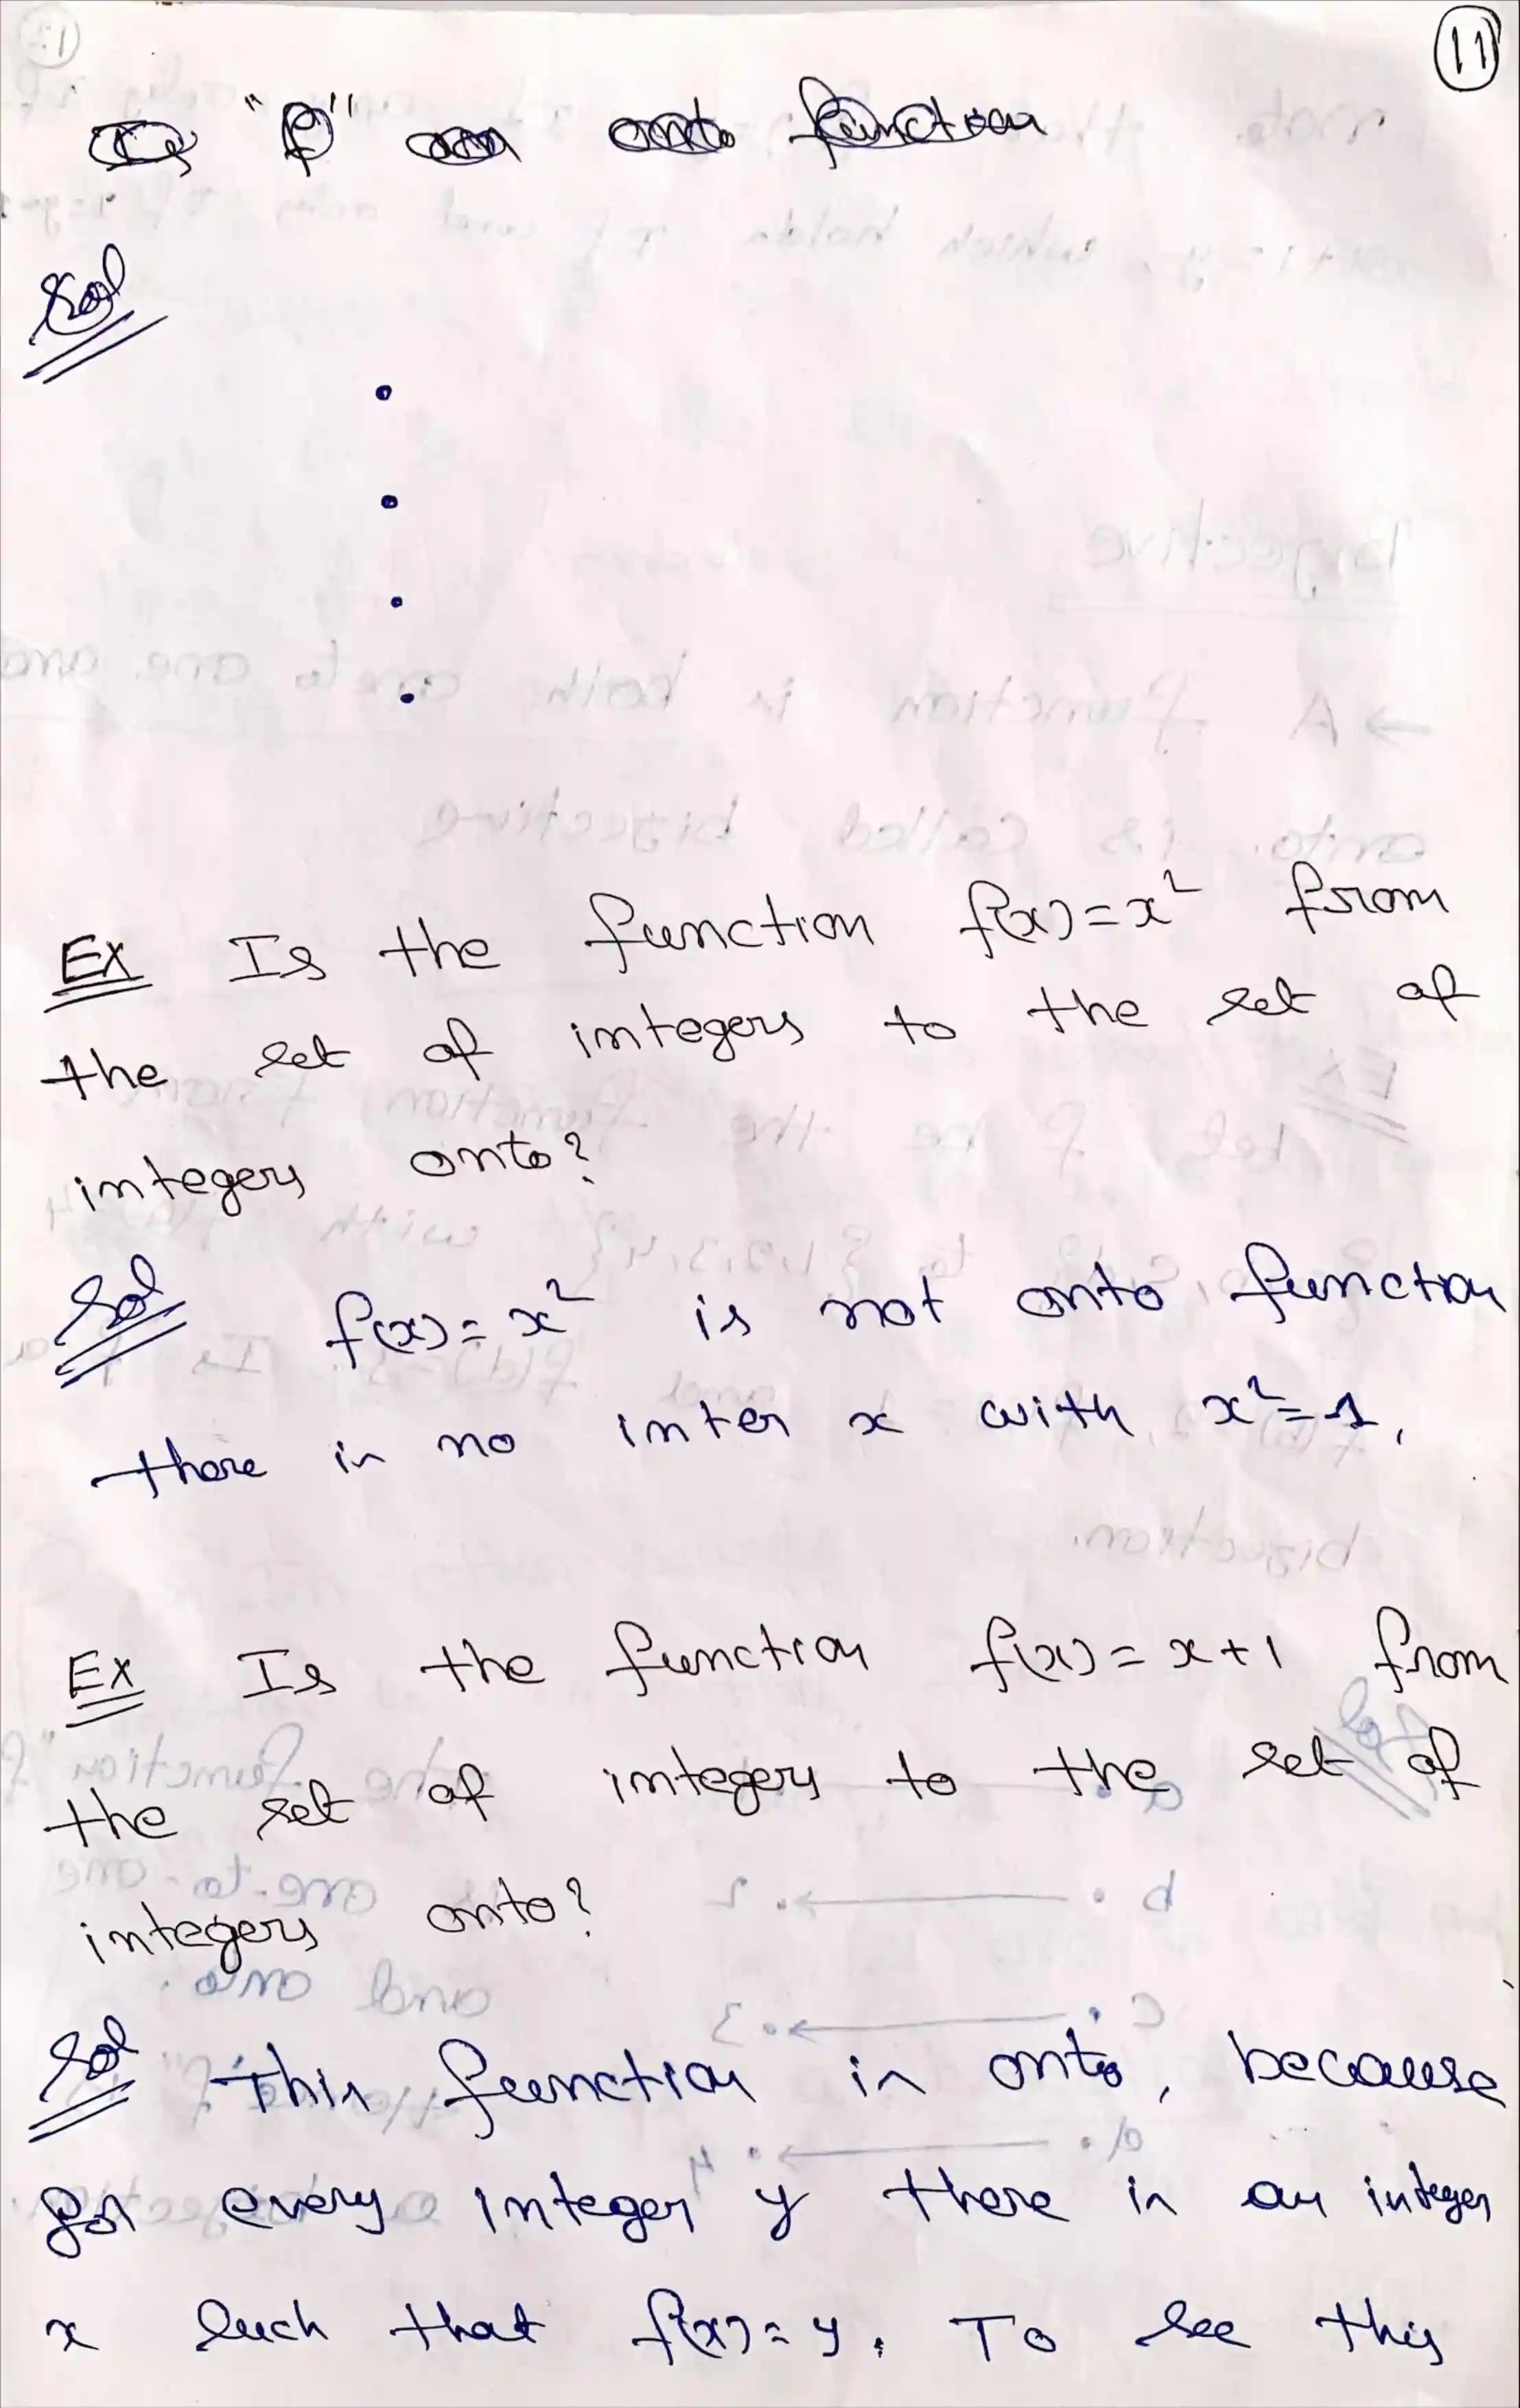 11
Is "f" an onto function
Sol
Ex Is the function f(x)=x² from
the set of integers to the set of
integers onto?
Sol f(x)=x² is not onto function
there is no inter x with x²=1,
Ex Is the function f(x)=x+1 from
the set of integers to the set of
integers onto?
Sol This function is onto, because
for every integer y there is an integer
x such that f(x)=y. To see this